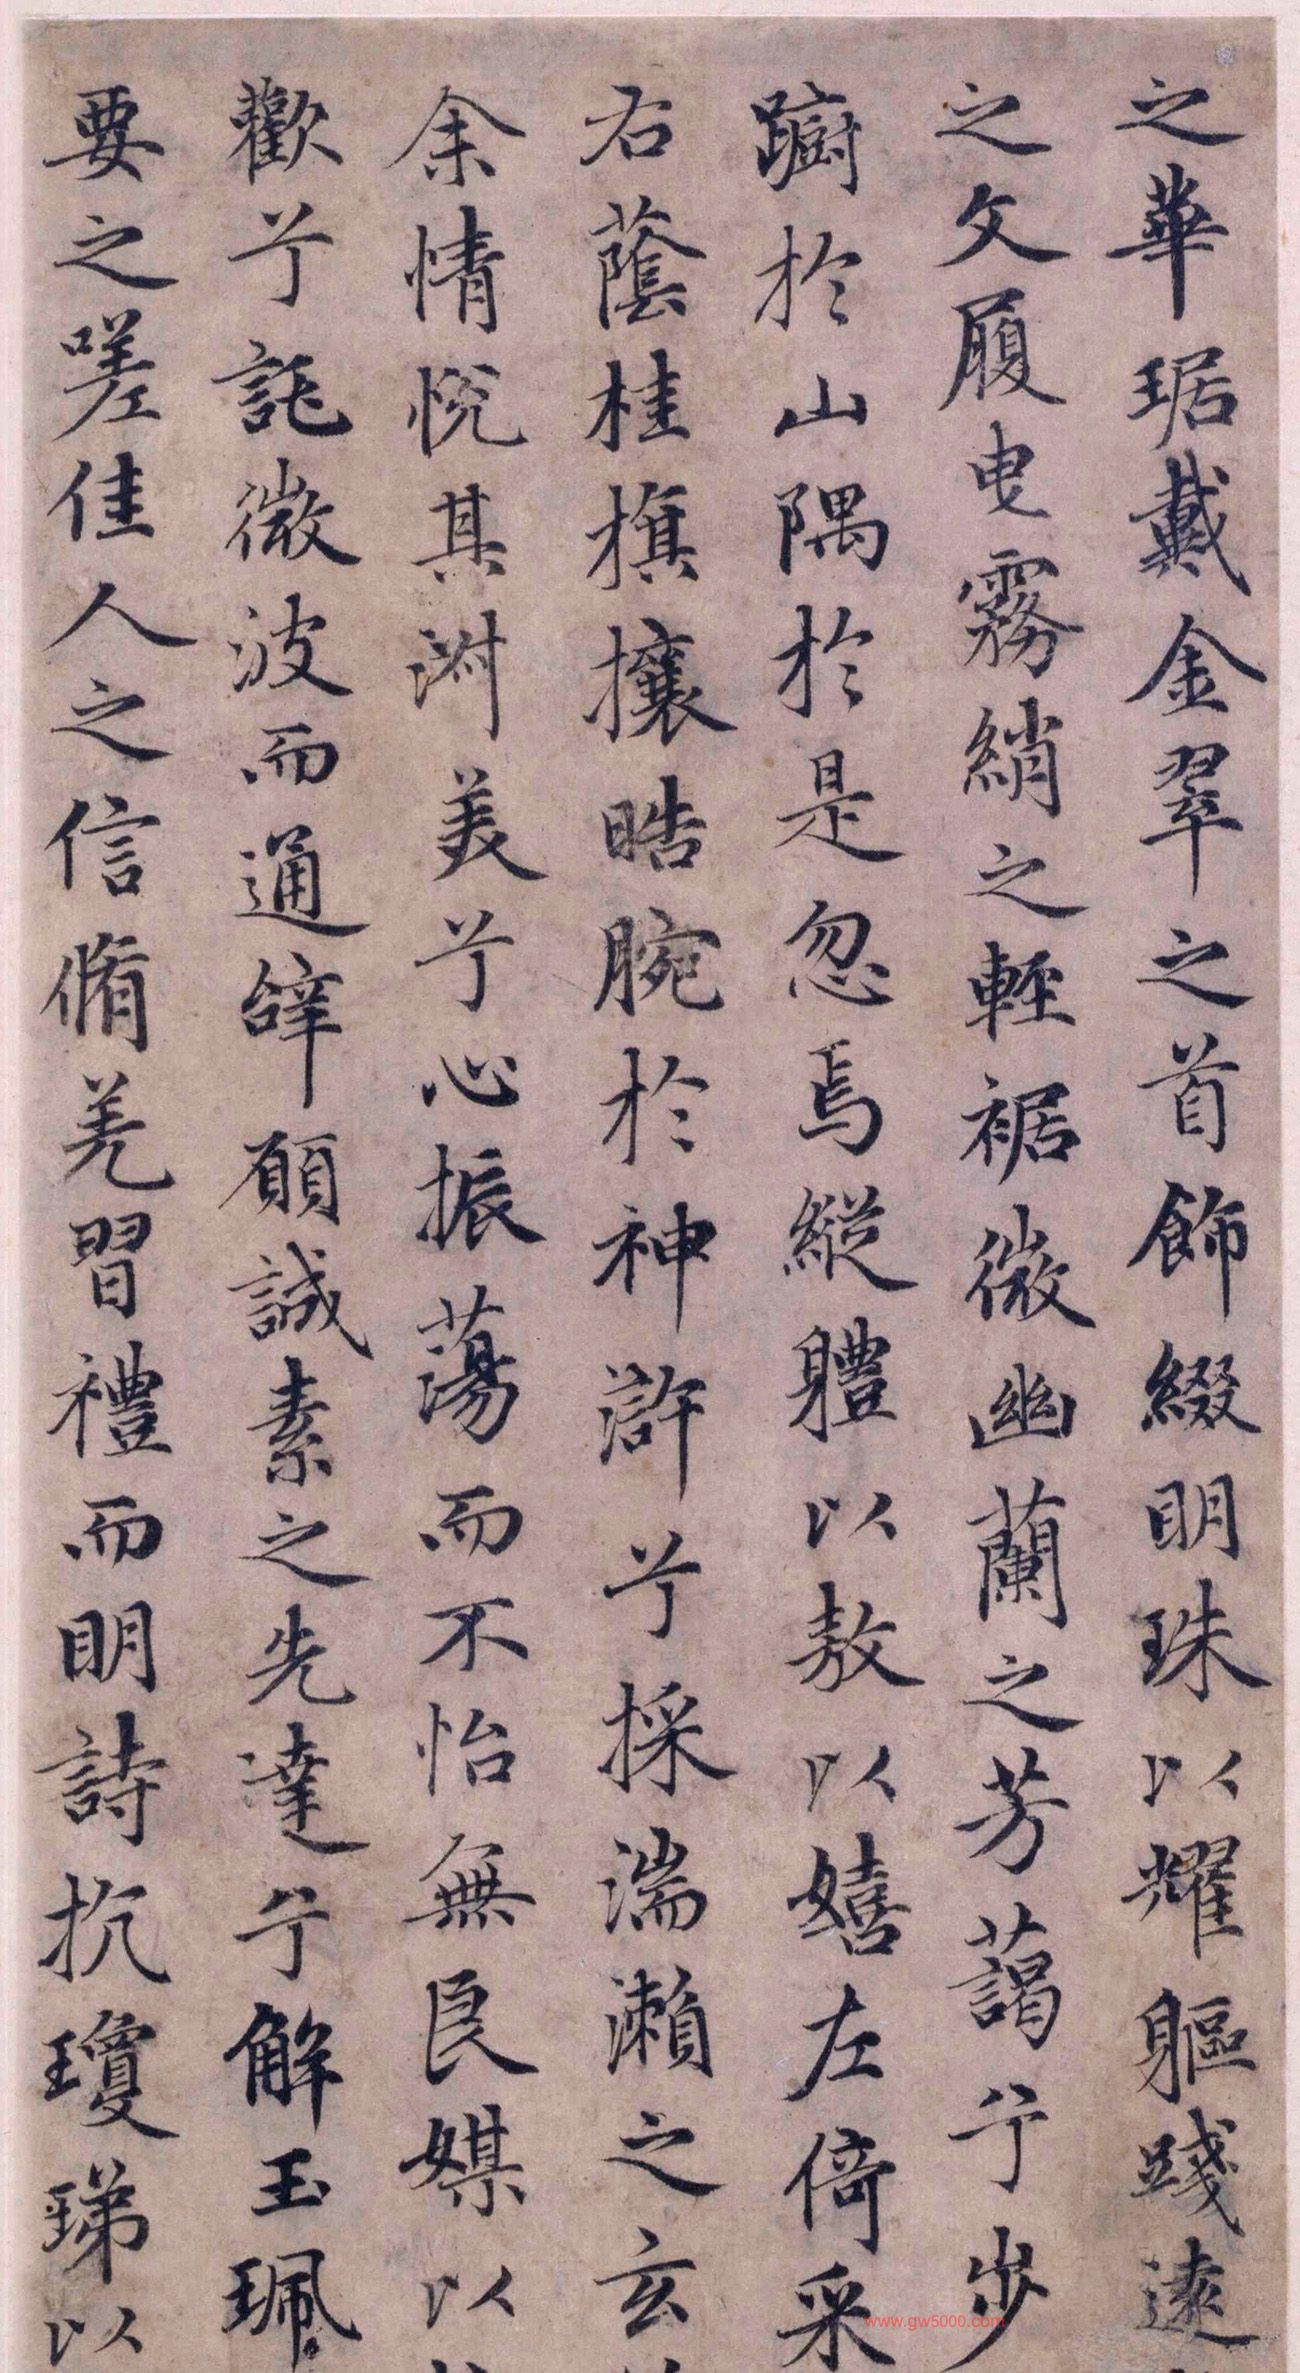 之華琚戴金翠之首飾綴明珠以耀軀踐遠
之文履曳霧綃之輕裾微幽蘭之芳藹兮步
躕於山隅於是忽焉縱體以敖以嬉左倚采
右蔭桂旗攘皓腕於神滸兮採湍瀨之玄
余情悅其淑美兮心振蕩而不怡無良媒以
歡兮託微波而通辭願誠素之先達兮解玉珮
要之嗟佳人之信脩羌習禮而明詩抗瓊珶以
www.gw5000.com